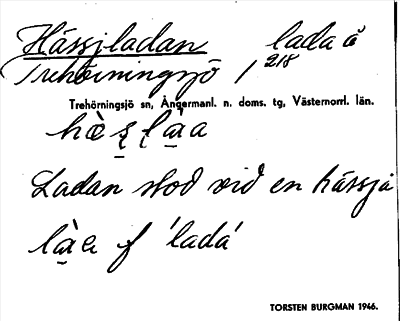 Hässjladan lada å
Trehörningsjö 1/218
Trehörningsjö sn, Ångermanl. n. doms. tg, Västernorrl. län.
Ladan stod vid en hässja
f 'lada'
TORSTEN BURGMAN 1946.